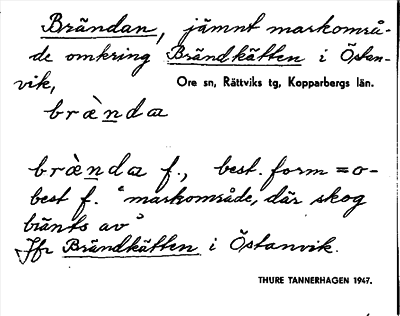 Brändan, jämnt markområ-
de omkring Brändkätten i Östan-
vik, Ore sn, Rättviks tg, Kopparbergs län.
bræ̀nda
bræ̀nda f., best. form = o-
best f. "markområde, där skog
bränts av"
Jfr Brändkätten i Östanvik.
THURE TANNERHAGEN 1947.